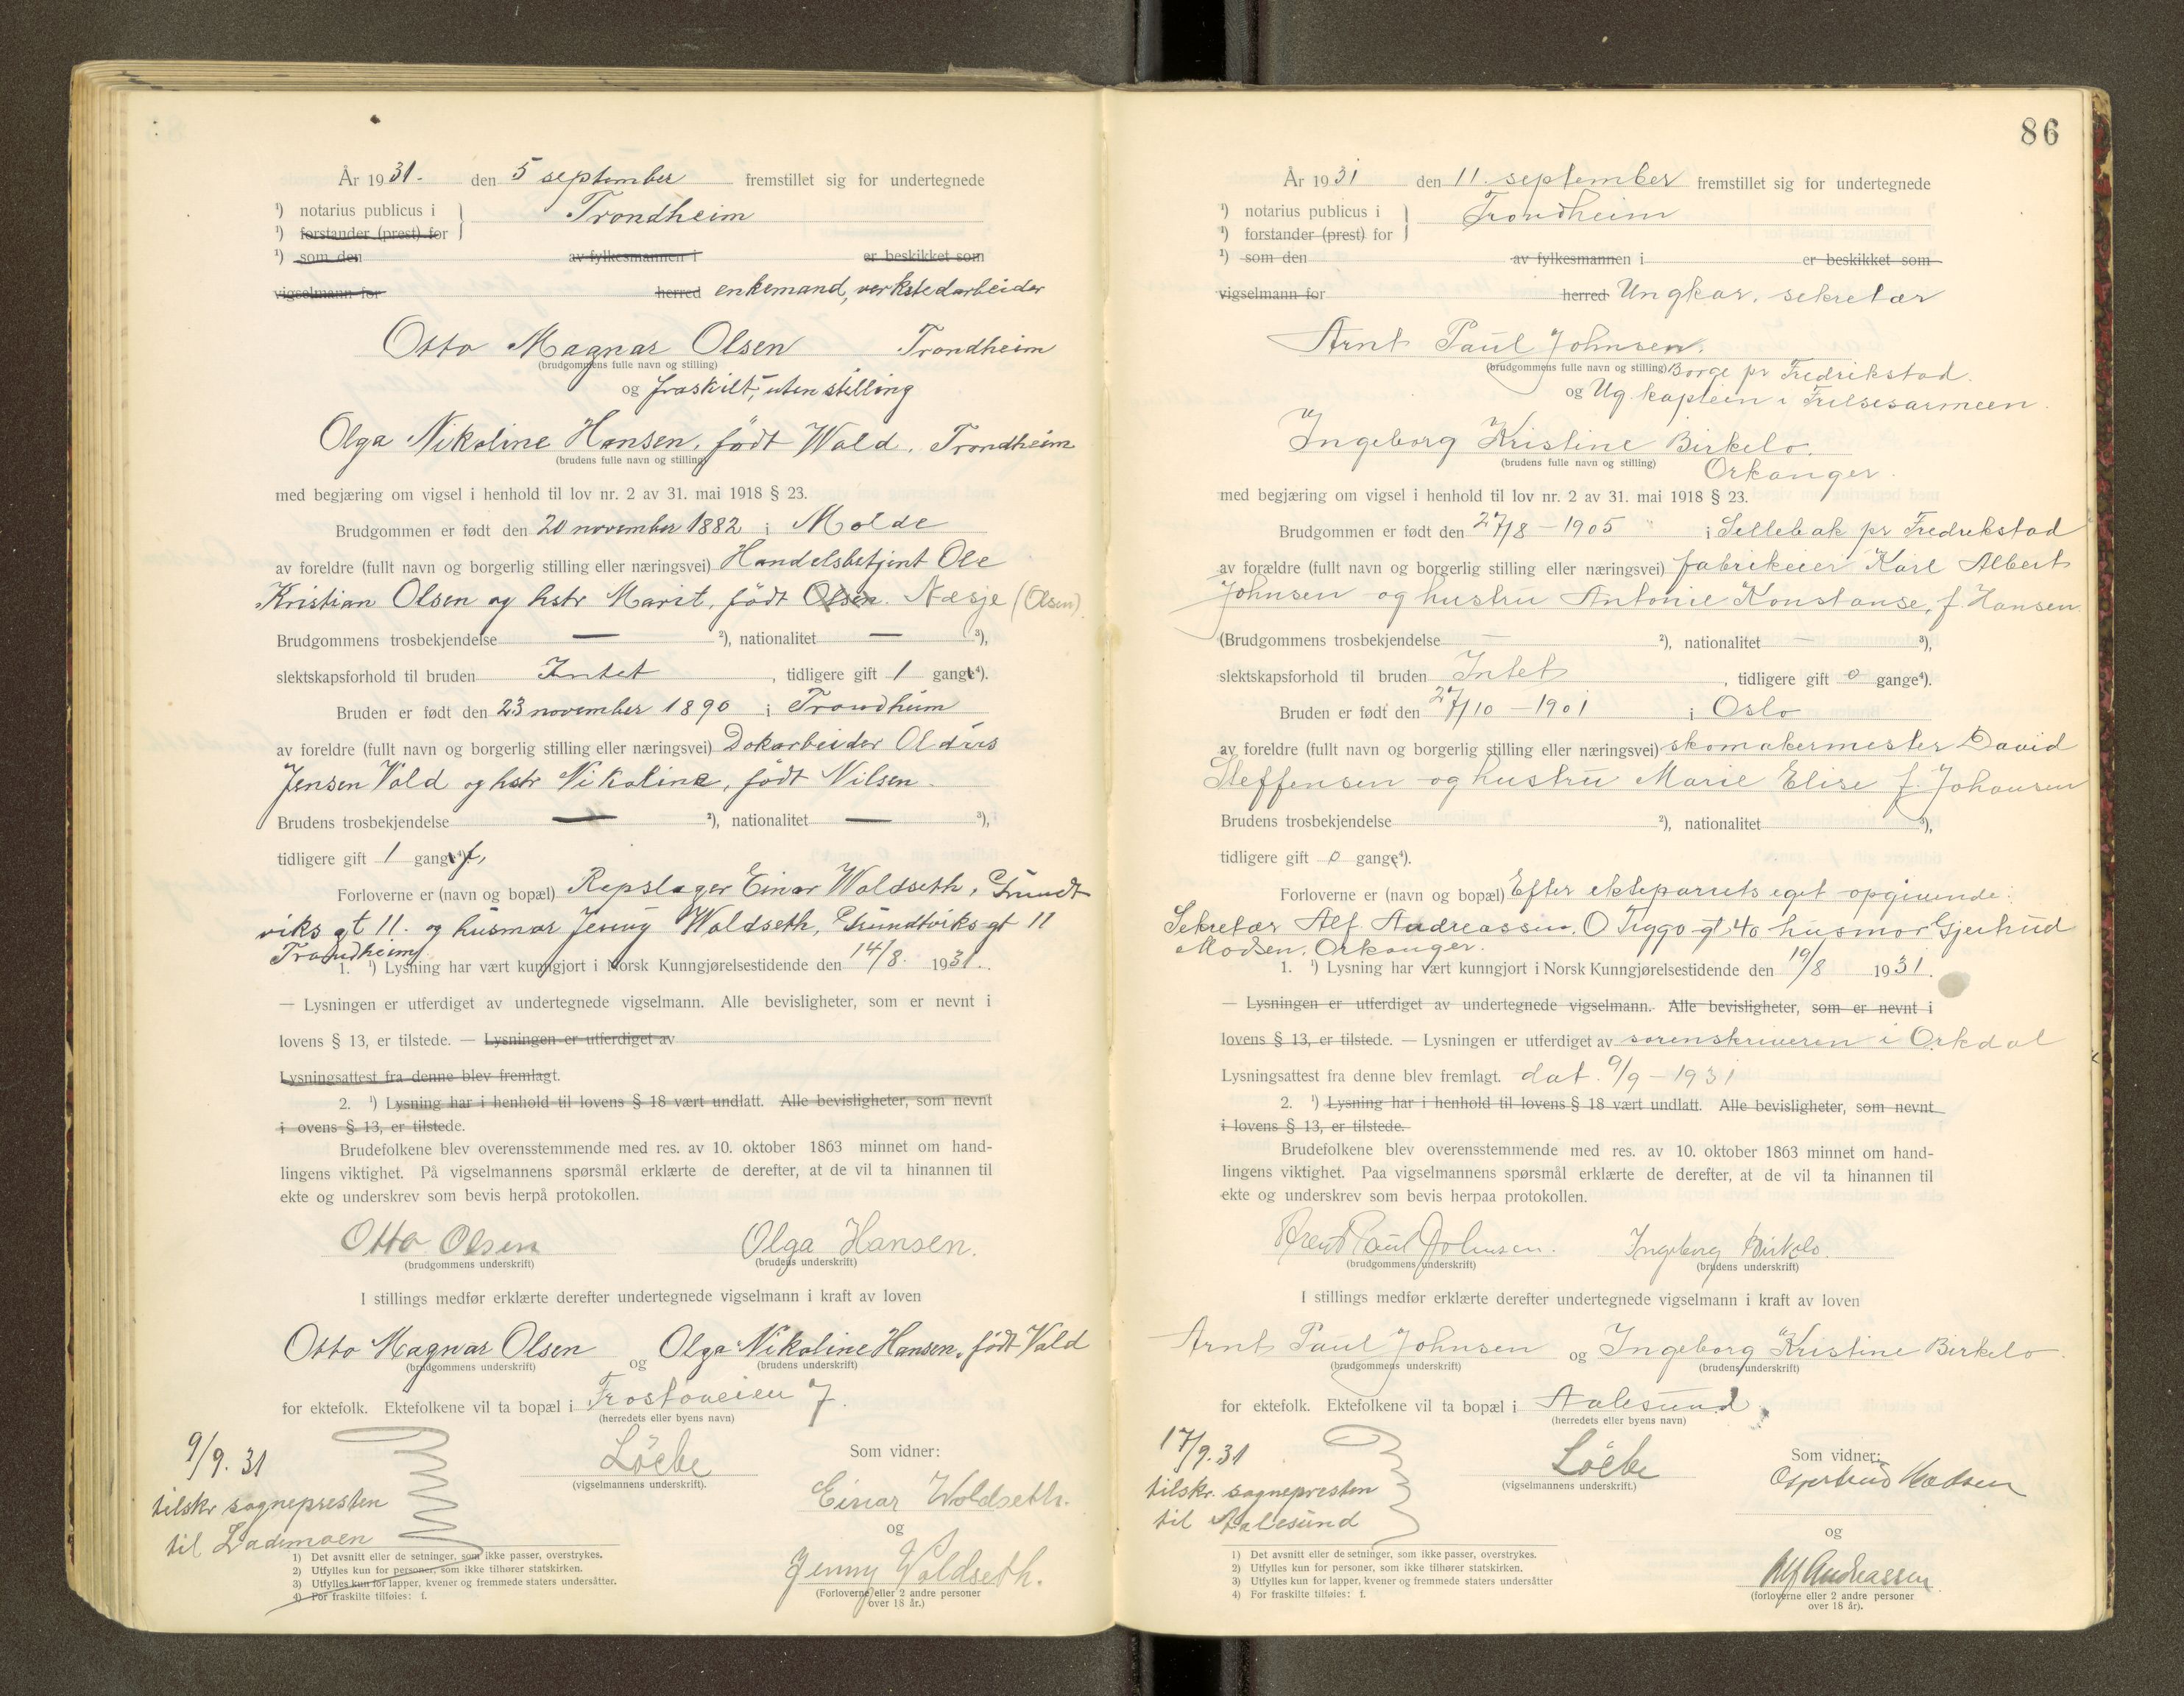 År 1931. den 5 september fremstillet sig for undertegnede
¹) notarius publicus i } Trondheim
¹) forstander (prest) for
¹) som den av fylkesmannen i er beskikket som
vigselmann for herred enkemand, verkstedarbeider
Otto Magnar Olsen Trondheim
(brudgommens fulle navn og stilling)
og fraskilt, uten stilling
Olga Nikoline Hansen, født Wald. Trondheim
(brudens fulle navn og stilling)
med begjæring om vigsel i henhold til lov nr. 2 av 31. mai 1918 § 23.
Brudgommen er født den 20 november 1882 i Molde
av foreldre (fullt navn og borgerlig stilling eller næringsvei) Handelsbetjent Ole
Kristian Olsen og hstr Marit, født Olsen. Næsje (Olsen)
Brudgommens trosbekjendelse — ²), nationalitet — ³),
slektskapsforhold til bruden Intet, tidligere gift 1 gange⁴).
Bruden er født den 23 november 1890 i Trondheim
av foreldre (fullt navn og borgerlig stilling eller næringsvei) Dokarbeider
Jensen Vald og hstr Nikoline, født Nilsen.
Brudens trosbekjendelse — ²), nationalitet — ³),
tidligere gift 1 gange⁴) f,
Forloverne er (navn og bopæl) Repslager Einar Woldseth, Grundt
viks gt 11. og husmor Jenny Woldseth, Grundtviks gt 11
Trondheim
1. ¹) Lysning har vært kunngjort i Norsk Kunngjørelsestidende den 14/8. 1931.
— Lysningen er utferdiget av undertegnede vigselmann. Alle bevisligheter, som er nevnt i
lovens § 13, er tilstede. — Lysningen er utferdiget av
Lysningsattest fra denne blev fremlagt.
2. ¹) Lysning har i henhold til lovens § 18 vært undlatt. Alle bevisligheter, som nevnt
i ovens § 13, er tilstede.
Brudefolkene blev overensstemmende med res. av 10. oktober 1863 minnet om hand-
lingens viktighet. På vigselmannens spørsmål erklærte de derefter, at de vil ta hinannen til
ekte og underskrev som bevis herpå protokollen.
Otto Olsen Olga Hansen.
(brudgommens underskrift) (brudens underskrift)
I stillings medfør erklærte derefter undertegnede vigselmann i kraft av loven
Otto Magnar Olsen og Olga Nikoline Hansen, født Vald
(brudgommens underskrift) (brudens underskrift)
for ektefolk. Ektefolkene vil ta bopæl i Frostaveien 7.
(herredets eller byens navn)
9/9. 31
tilskr sognepresten
til Lademoen
Löebe
(vigselmannens underskrift).
Som vidner:
Einar Woldseth.
og
Jenny Woldseth.
(Forloverne eller 2 andre personer
over 18 år.)
1) Det avsnitt eller de setninger, som ikke passer, overstrykes.
2) Utfylles kun for personer, som ikke tilhører statskirken.
3) Utfylles kun for lapper, kvener og fremmede staters undersåtter.
4) For fraskilte tilføies: f.
86
År 1931 den 11. september fremstillet sig for undertegnede
¹) notarius publicus i } Trondheim
¹) forstander (prest) for
¹) som den av fylkesmannen i er beskikket som
vigselmann for herred Ungkar, sekretær
Arnt Paul Johnsen.
(brudgommens fulle navn og stilling) Borge pr Fredrikstad.
og Ug. kaptein i Frelsesarmeen.
Ingeborg Kristine Birkelo.
(brudens fulle navn og stilling) Orkanger.
med begjæring om vigsel i henhold til lov nr. 2 av 31. mai 1918 § 23.
Brudgommen er født den 27/8 – 1905 i Sellebak pr Fredrikstad
av forældre (fullt navn og borgerlig stilling eller næringsvei) fabrikeier Karl Albert
Johnsen og hustru Antonie Konstanse, f. Hansen
(Brudgommens trosbekjendelse — ²), nationalitet — ³),
slektskapsforhold til bruden Intet, tidligere gift 0 gange⁴).
Bruden er født den 27/10 – 1901 i Oslo
av foreldre (fullt navn og borgerlig stilling eller næringsvei) skomakermester David
Steffensen og hustru Marie Elise f. Johansen
Brudens trosbekjendelse ²), nationalitet ³),
tidligere gift 0 gange⁴).
Forloverne er (navn og bopæl) Efter ekteparrets eget opgivende:
Sekretær Alf Andreassen, O Tryggv gt 40 husmor Gjertrud
Madsen, Orkanger.
1. ¹) Lysning har vært kunngjort i Norsk Kunngjørelsestidende den 19/8 1931.
— Lysningen er utferdiget av undertegnede vigselmann. Alle bevisligheter, som er nevnt i
lovens § 13, er tilstede. — Lysningen er utferdiget av sorenskriveren i Orkdal
Lysningsattest fra denne blev fremlagt. dat. 9/9 – 1931
2. ¹) Lysning har i henhold til lovens § 18 vært undlatt. Alle bevisligheter, som nevnt
i lovens § 13, er tilstede.
Brudefolkene blev overensstemmende med res. av 10. oktober 1863 minnet om hand-
lingens viktighet. Paa vigselmannens spørsmål erklærte de derefter, at de vil ta hinannen til
ekte og underskrev som bevis herpaa protokollen.
Arent Paul Johnsen. Ingeborg Birkelo.
(brudgommens underskrift) (brudens underskrift)
I stillings medfør erklærte derefter undertegnede vigselmann i kraft av loven
Arnt Paul Johnsen og Ingeborg Kristine Birkelo.
(brudgommens underskrift) (brudens underskrift)
for ektefolk. Ektefolkene vil ta bopæl i Aalesund
(herredets eller byens navn)
17/9. 31
tilskr. sognepresten
til Aalesund
Löebe
(vigselmannens underskrift.)
Som vidner:
Gjertrud Madsen
og
Alf Andreassen
(forloverne eller 2 andre personer
over 18 år).
1) Det avsnitt eller de setninger, som ikke passer, overstrykes.
2) Utfylles kun for personer, som ikke tilhører statskirken.
3) Utfylles kun for lapper, kvener og fremmede staters undersåtter
4) For fraskilte tilføies: f.